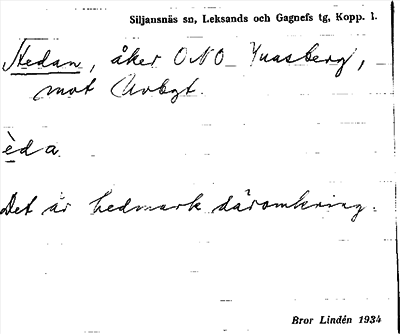 Siljansnäs sn, Leksands och Gagnefs tg, Kopp. l.
Hedan, åker ONO Yvasberg,
mot
èda
Det är hedmark däromkring.
Bror Lindén 1934